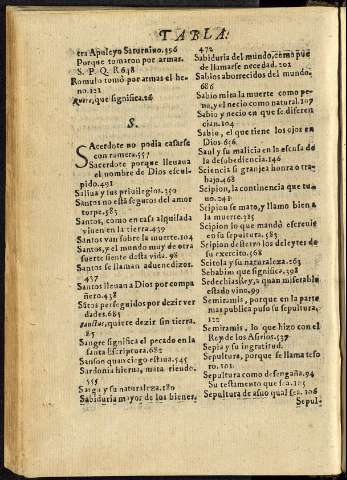 TABLA.
tra Apuleyo Saturnino. 596
Porque tomaron por armas.
S. P. Q. R 648
Romulo tomó por armas el he-
no. 121
Ruere, que significa. 26
S.
SAcerdote no podia casarse
con ramera. 557
Sacerdote porque lleuaua
el nombre de Dios escul-
pido. 491
Saliua y sus priuilegios. 350
Santos no està seguros del amor
torpe. 583
Santos, como en casa alquilada
viuen en la tierra. 459
Santos van sobre la muerte. 104
Santos, y el mundo muy de otra
suerte siente desta vida. 98
Santos se llaman aduenedizos.
437
Santos lleuan a Dios por compa
ñero. 438
Sātos perseguidos por dezir ver
dades. 685
Sanctus, quiere dezir sin tierra.
85
Sangre significa el pecado en la
santa Escriptora. 682
Sanson quan ciego estaua. 545
Sardonia hierua, mata riendo.
555
Sarga y su naturaleza. 180
Sabiduria mayor de los bienes.
472
Sabiduria del mundo, como pue
de llamarse necedad. 201
Sabios aborrecidos del mundo.
686
Sabio mira la muerte como pe-
na, y el necio como natural. 107
Sabio y necio en que se diferen
cian. 104
Sabio, el que tiene los ojos en
Dios. 656
Saul y su malicia en la escusa de
la desobediencia. 146
Sciencia si granjea honra o tra-
bajo. 468
Scipion, la continencia que tu-
uo. 241
Scipion se mato, y llamo bien a
la muerte. 325
Scipion lo que mandó escreuir
en su sepultura. 583
Scipion desterro los deleytes de
su exercito. 668
Sciola y su naturaleza. 263
Sehabim que significa. 398
Sedechias Rey, a quan miserable
estado vino. 99
Semiramis, porque en la parte
mas publica puso su sepultura,
122
Semiramis, lo que hizo con el
Rey de los Asirios. 537
Sepia y su ingratitud.
Sepultura, porque se llama teso
ro. 101
Sepultura como desengaña. 94
Su testamento que sea. 105
Sepultura de asno qual sea. 106
Sepul-